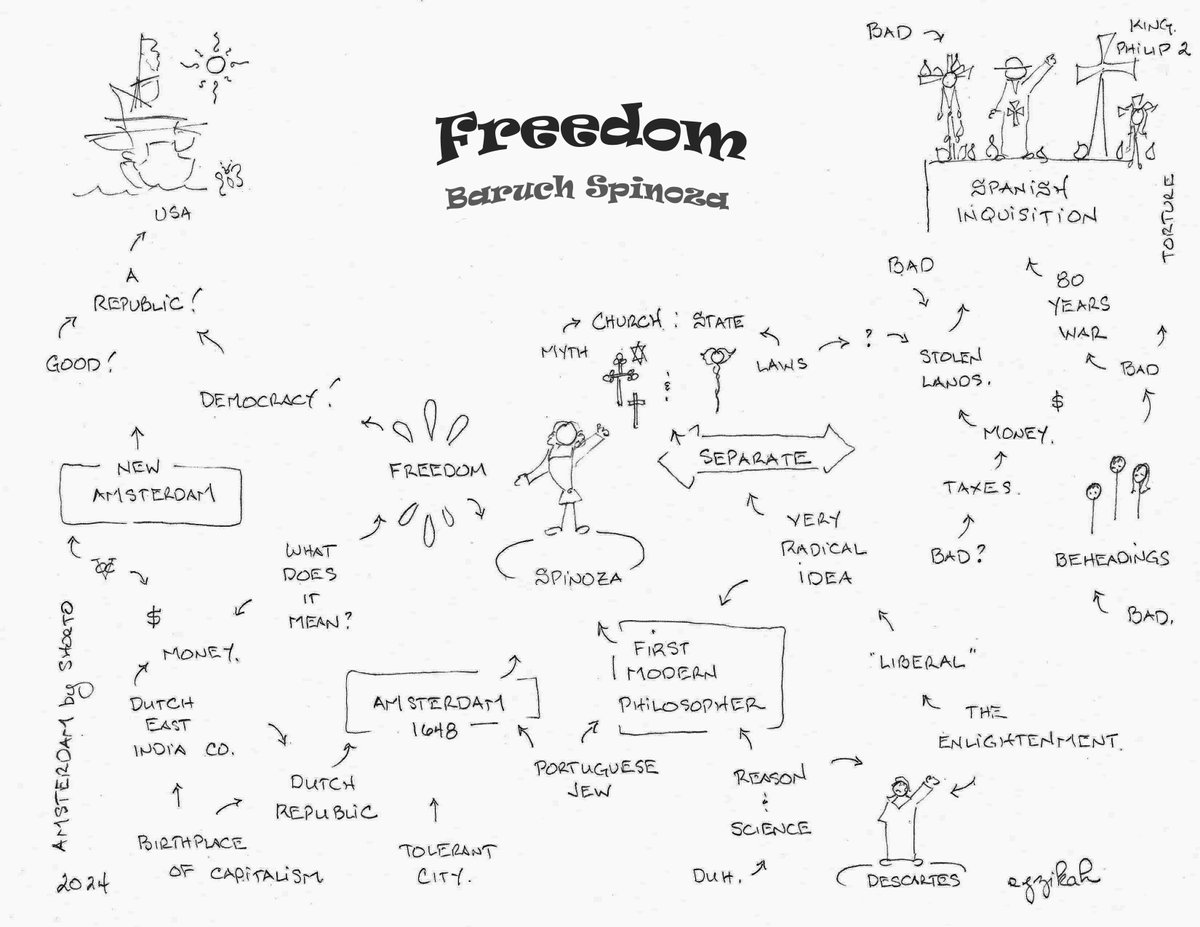 Freedom
Baruch Spinoza
USA
A
REPUBLIC!
GOOD!
DEMOCRACY!
NEW
AMSTERDAM
$
MONEY.
DUTCH
EAST
INDIA CO.
BIRTHPLACE
OF CAPITALISM
AMSTERDAM by SHORTO
2024
WHAT
DOES
IT
MEAN?
FREEDOM
SPINOZA
AMSTERDAM
1648
DUTCH
REPUBLIC
TOLERANT
CITY.
PORTUGUESE
JEW
FIRST
MODERN
PHILOSOPHER
REASON
&
SCIENCE
DUH.
DESCARTES
THE
ENLIGHTENMENT.
"LIBERAL"
VERY
RADICAL
IDEA
SEPARATE
CHURCH : STATE
MYTH
&
LAWS
?
STOLEN
LANDS.
BAD
$
MONEY.
TAXES.
BAD?
BAD
KING
PHILIP 2
SPANISH
INQUISITION
TORTURE
80
YEARS
WAR
BAD
BEHEADINGS
BAD.
egzikah